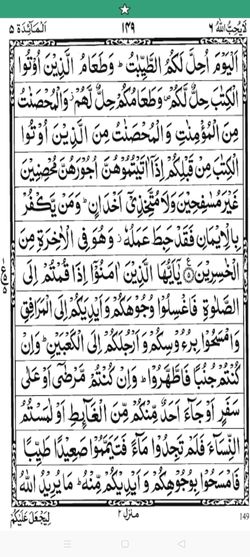 لَا يُحِبُّ اللهُ ٦ ١٤٩ اَلْمَآئِدَة ٥
اَلْيَوْمَ اُحِلَّ لَكُمُ الطَّيِّبٰتُ ؕ وَطَعَامُ الَّذِيْنَ اُوْتُوا
الْكِتٰبَ حِلٌّ لَّكُمْ ۪ وَطَعَامُكُمْ حِلٌّ لَّهُمْ ؗ وَالْمُحْصَنٰتُ
مِنَ الْمُؤْمِنٰتِ وَالْمُحْصَنٰتُ مِنَ الَّذِيْنَ اُوْتُوا
الْكِتٰبَ مِنْ قَبْلِكُمْ اِذَاۤ اٰتَيْتُمُوْهُنَّ اُجُوْرَهُنَّ مُحْصِنِيْنَ
غَيْرَ مُسٰفِحِيْنَ وَلَا مُتَّخِذِيْۤ اَخْدَانٍ ؕ وَمَنْ يَّكْفُرْ
بِالْاِيْمَانِ فَقَدْ حَبِطَ عَمَلُهٗ ؗ وَهُوَ فِي الْاٰخِرَةِ مِنَ
الْخٰسِرِيْنَ ۝٥ يٰۤاَيُّهَا الَّذِيْنَ اٰمَنُوْۤا اِذَا قُمْتُمْ اِلَى
الصَّلٰوةِ فَاغْسِلُوْا وُجُوْهَكُمْ وَاَيْدِيَكُمْ اِلَى الْمَرَافِقِ
وَامْسَحُوْا بِرُءُوْسِكُمْ وَاَرْجُلَكُمْ اِلَى الْكَعْبَيْنِ ؕ وَاِنْ
كُنْتُمْ جُنُبًا فَاطَّهَّرُوْا ؕ وَاِنْ كُنْتُمْ مَّرْضٰۤى اَوْ عَلٰى
سَفَرٍ اَوْ جَآءَ اَحَدٌ مِّنْكُمْ مِّنَ الْغَآئِطِ اَوْ لٰمَسْتُمُ
النِّسَآءَ فَلَمْ تَجِدُوْا مَآءً فَتَيَمَّمُوْا صَعِيْدًا طَيِّبًا
فَامْسَحُوْا بِوُجُوْهِكُمْ وَاَيْدِيْكُمْ مِّنْهُ ؕ مَا يُرِيْدُ اللهُ
منزل ٢ لِيَجْعَلَ عَلَيْكُمْ
149